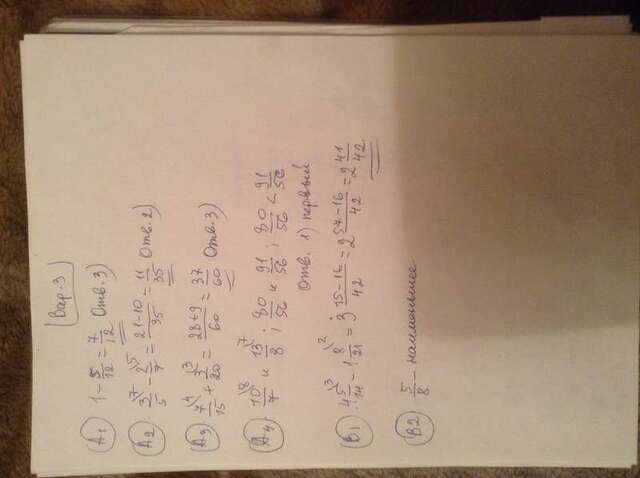 Вар. 3
А1 1 - 5/12 = 7/12 Отв. 3)
А2 3\7/5 - 2\5/7 = 21-10/35 = 11/35 Отв. 2)
А3 7\4/15 + 3\3/20 = 28+9/60 = 37/60 Отв. 3)
А4 10\8/7 и 13\7/8 ; 80/56 и 91/56 ; 80/56 < 91/56
Отв. 1) первый
В1 4 5\3/14 - 1 8\2/21 = 3 15-16/42 = 2 57-16/42 = 2 41/42
В2 5/8 - наименьшее